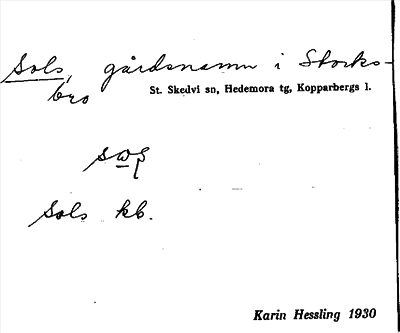 Sols, gårdsnamn i Storks-
bro
St. Skedvi sn, Hedemora tg, Kopparbergs l.
Sols kb.
Karin Hessling 1930